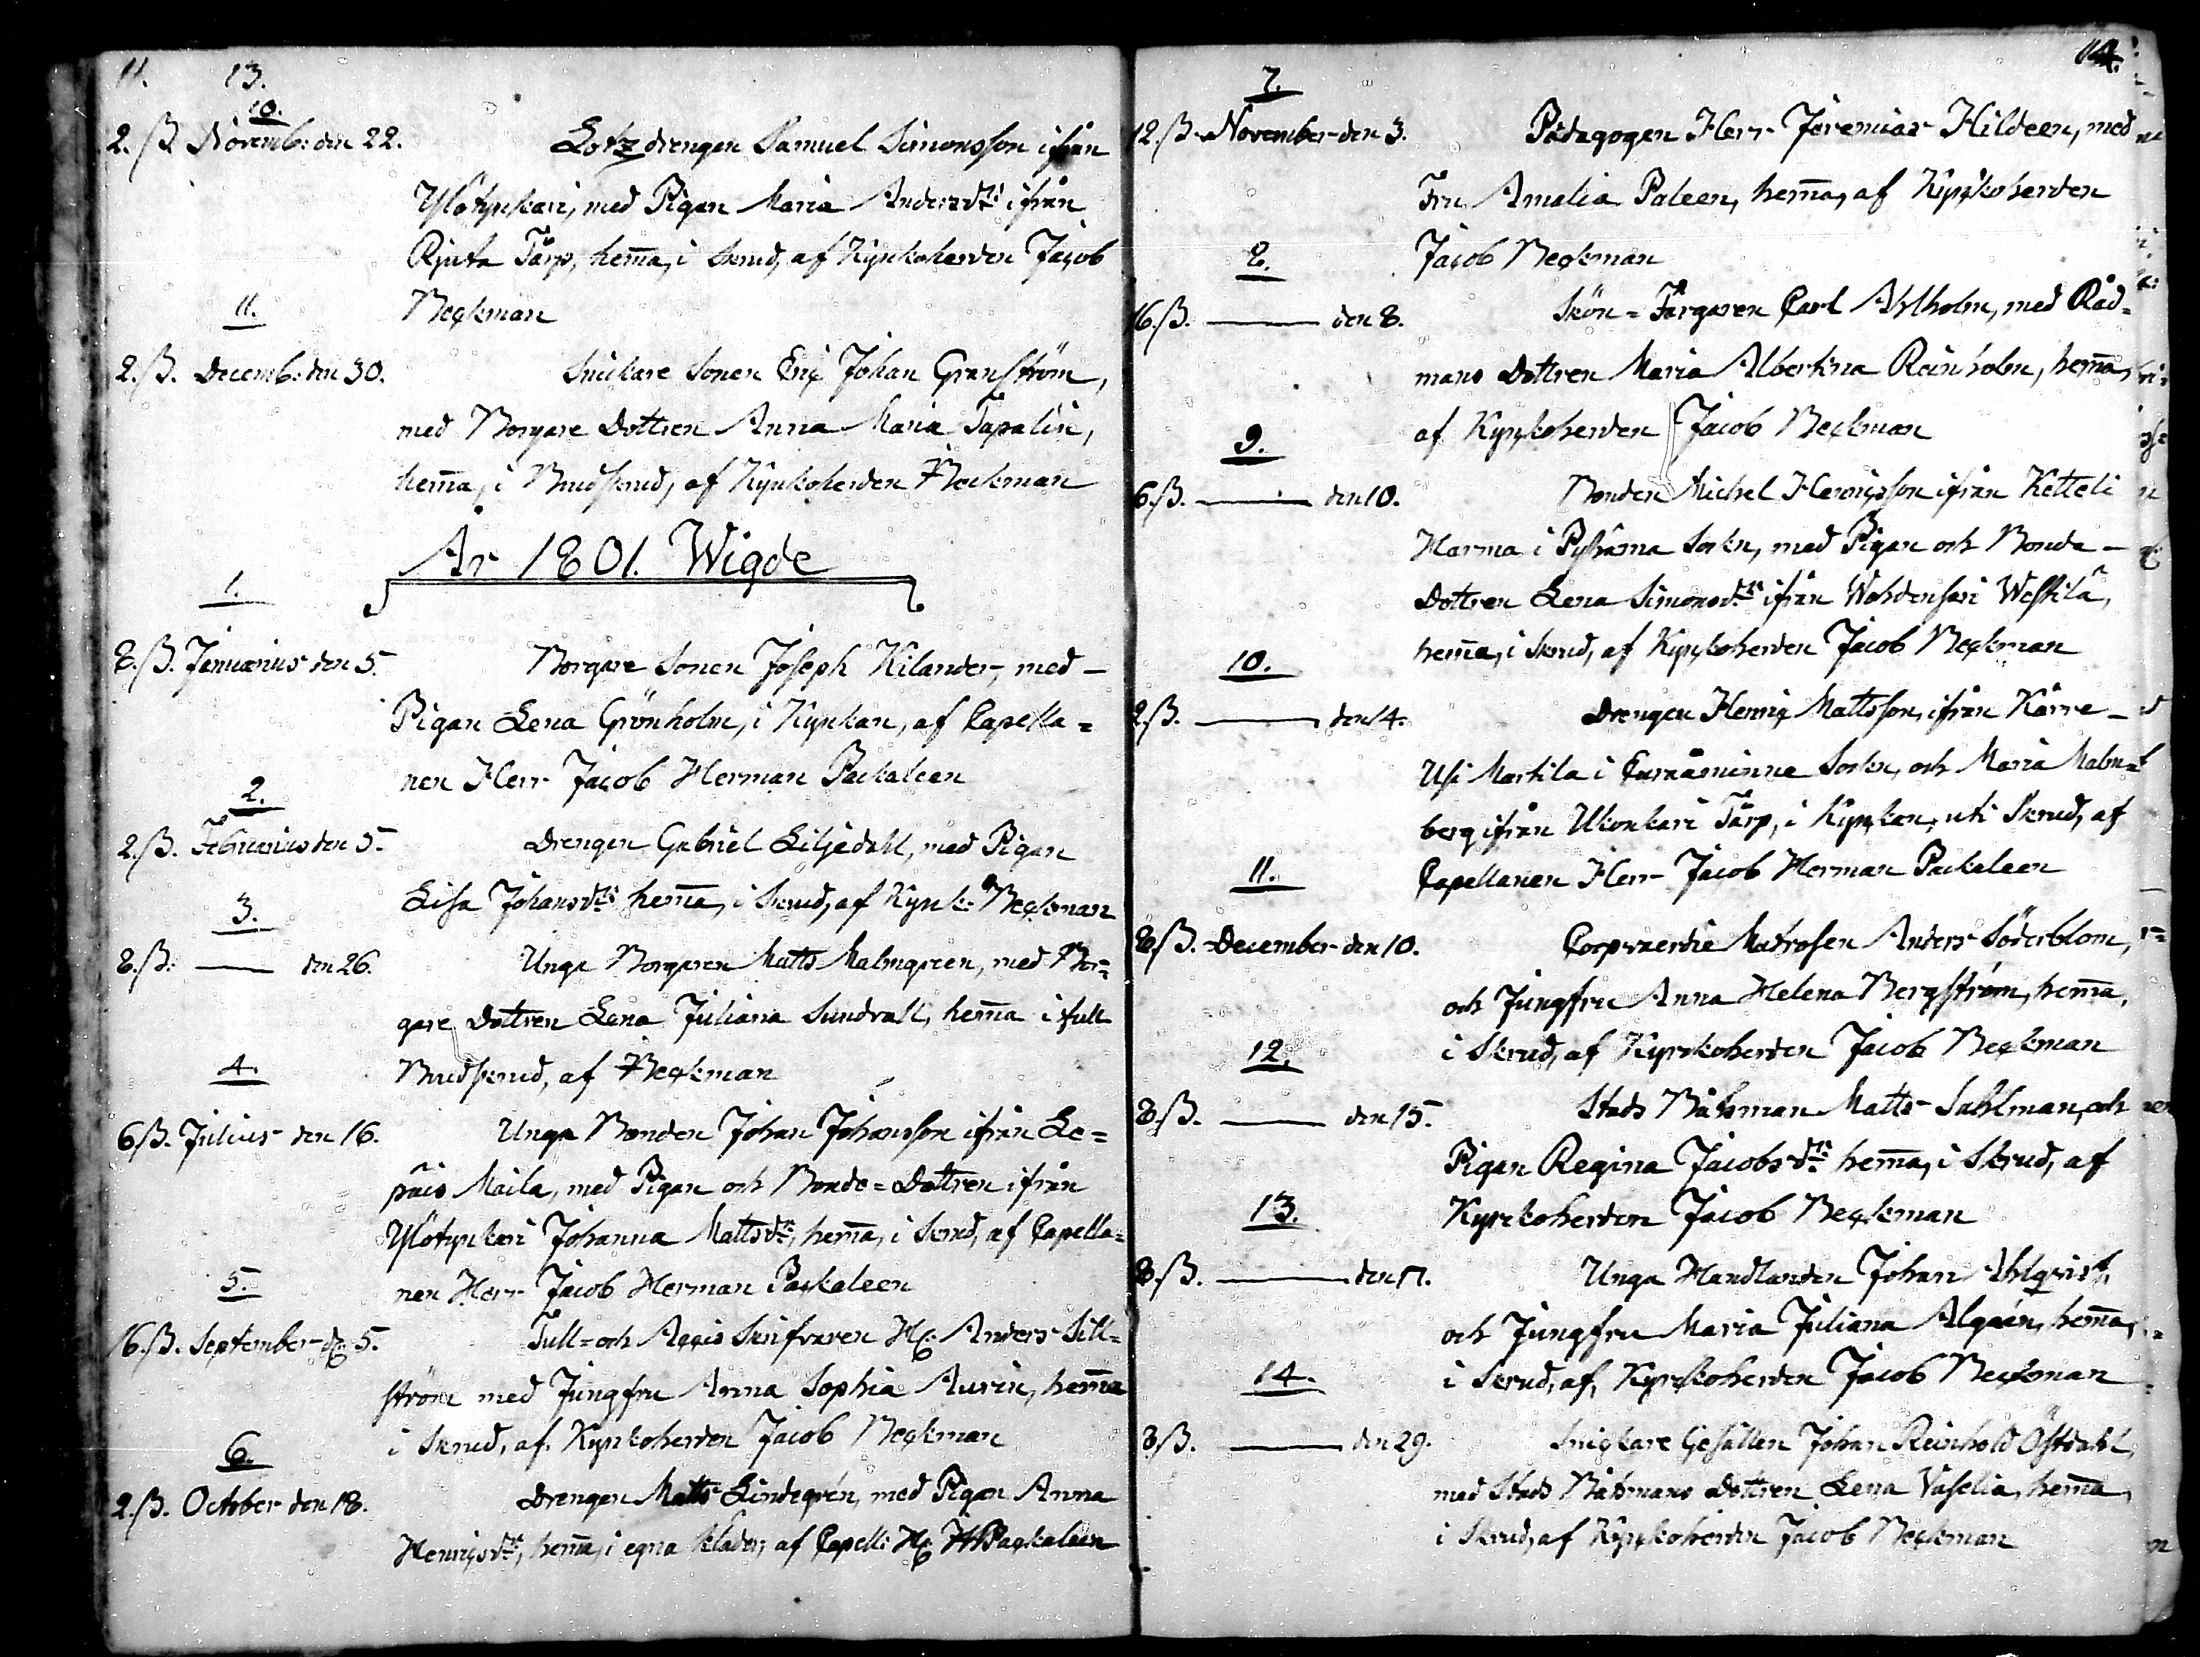 11. 13.
10.
2. ß. Novemb: den 22. Lotzdrengen Samuel Simonsson ifrån
Ylötynkari, med Pigan Maria Andersdtr ifrån
Rjuta Tårp, hem̄a, i skrud, af Kyrkoherden Jacob
Beckman
11.
2. ß. Decemb: den 30. Snickare Sonen Eric Johan Granström,
med Borgare Dottren Anna Maria Tapalin,
hem̄a, i Brudskrud, af Kyrkoherden Beckman
År 1801. Wigde
1.
8. ß. Januarius den 5. Borgare Sonen Joseph Kilander, med
Pigan Lena Grönholm, i Kyrkan, af Capella=
nen Herr Jacob Herman Packaleen
2.
2. ß. Februarius den 5. Drengen Gabriel Liljedahl, med Pigan
Lisa Johansdtr hem̄a, i Skrud, af Kyrk: Beckman
3.
8. ß. —— den 26. Unga Borgaren Matts Malmgreen, med Bor=
gare Dottren Lena Juliana Sundvall, hem̄a i full
Brudskrud, af Beckman
4.
6 ß. Julius den 16. Unga Bonden Johan Johansson ifrån Le=
päis Maila, med Pigan och Bonde=Dottren ifrån
Ylötynkari Johanna Mattsdtr, hem̄a, i Skrud, af Capella=
nen Herr Jacob Herman Packaleen
5.
16. ß. September d. 5. Tull= och Accis Skrifvaren H. Anders Sill=
ström med Jungfru Anna Sophia Aurin, hem̄a
i Skrud, af Kyrkoherden Jacob Beckman
6.
2. ß. October den 18. Drengen Matts Lindegrén, med Pigan Anna
Henricsdtr, hem̄a, i egna kläder, af Capell: H. JHPackaleen
114.
7.
12. ß. November den 3. Pädagogen Herr Jeremias Hildeen, med
Fru Amalia Paleen, hem̄a, af Kyrkoherden
Jacob Beckman
8.
16. ß. —— den 8. Skön=Färgaren Carl Ahlholm, med Råd=
mans Dottren Maria Albertina Reinholm, hem̄a,
af Kyrkoherden Jacob Beckman
9.
6. ß. —— den 10. Bonden Michel Henricsson ifrån Ketteli
Harma i Pyhäma Sockn, med Pigan och Bonde
Dottren Lena Simonsdtr ifrån Wohdensari Westilä,
hem̄a, i Skrud, af Kyrkoherden Jacob Beckman
10.
2 ß. —— den 14. Drengen Henric Mattsson, ifrån Kärre
Usi Martila i Euraåminne Sockn, och Maria Malm=
berg ifrån Ukonkari Tårp, i Kyrkan, uti Skrud, af
Capellanen Herr Jacob Herman Packaleen
11.
8 ß. December den 10. Matrosen Anders Söderblom,
och Jungfru Anna Helena Bergström, hem̄a,
i Skrud, af Kyrkoherden Jacob Beckman
12.
8. ß. —— den 15. Stads Båtsman Matts Sahlman, och
Pigan Regina Jacobsdtr hem̄a, i Skrud, af
Kyrkoherden Jacob Beckman
13.
8. ß. —— den 17. Unga Handlanden Johan Ahlqvist,
och Jungfru Maria Juliana Algreén, hem̄a,
i Skrud, af Kyrkoherden Jacob Beckman
14.
8 ß. —— den 29. Snickare Gesällen Johan Reinhold Östdahl,
med Stads Båtsmans Dottren Lena Vaselia, hem̄a,
i Skrud, af Kyrkoherden Jacob Beckman